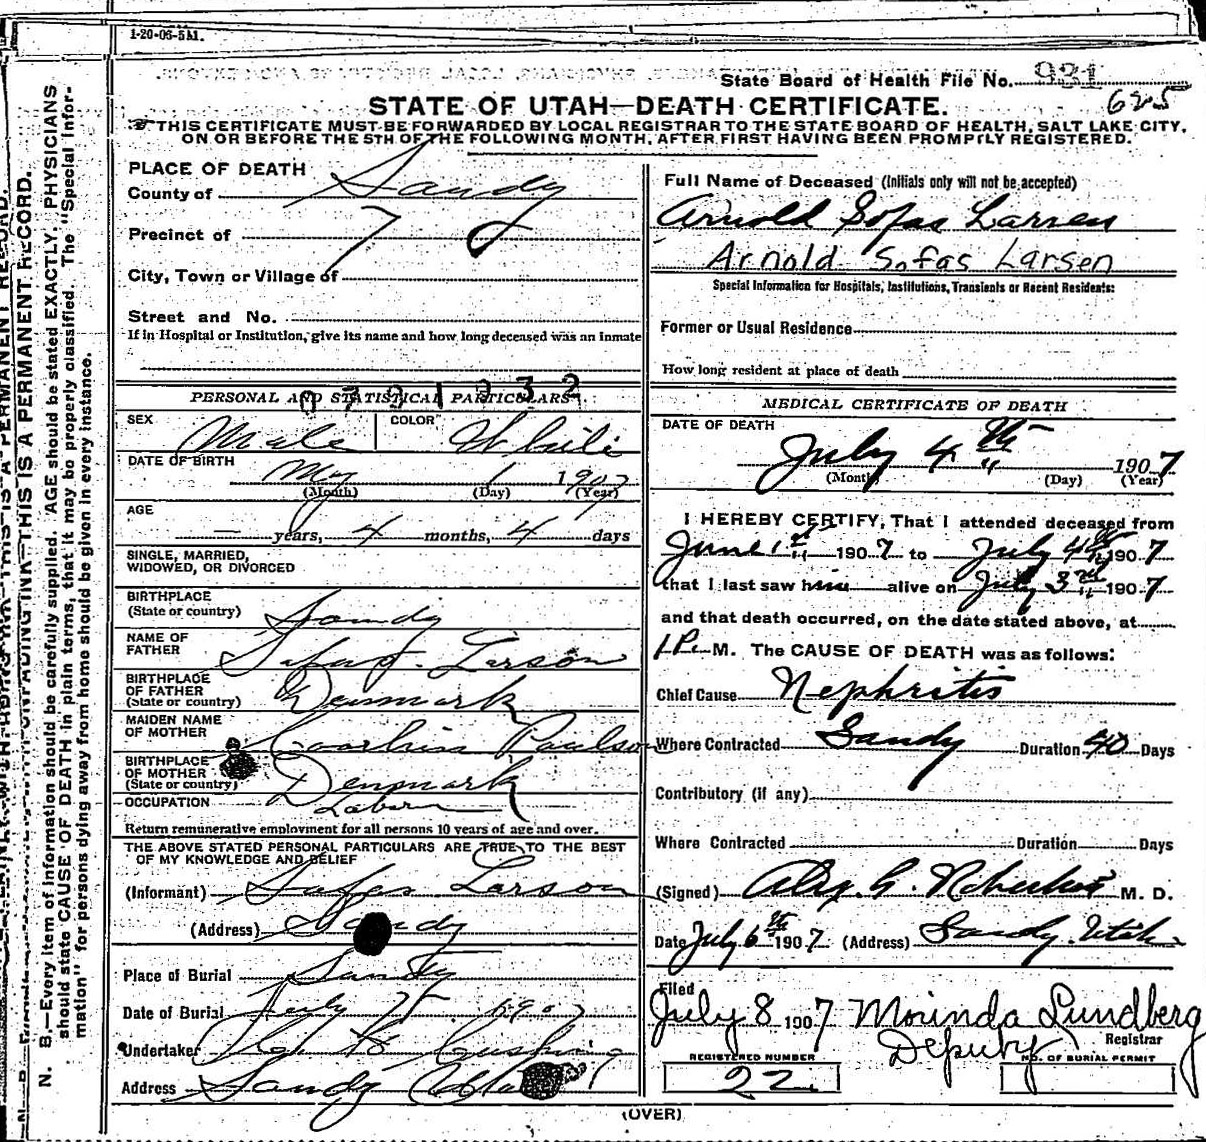 1-20-06-5M.
State Board of Health File No. 931
625
STATE OF UTAH—DEATH CERTIFICATE.
THIS CERTIFICATE MUST BE FORWARDED BY LOCAL REGISTRAR TO THE STATE BOARD OF HEALTH, SALT LAKE CITY,
ON OR BEFORE THE 5TH OF THE FOLLOWING MONTH, AFTER FIRST HAVING BEEN PROMPTLY REGISTERED.
N. B.—Every item of information should be carefully supplied. AGE should be stated EXACTLY. PHYSICIANS
should state CAUSE OF DEATH in plain terms, that it may be properly classified. The "Special Infor-
mation" for persons dying away from home should be given in every instance.
THIS IS A PERMANENT RECORD.
PLACE OF DEATH
County of Sandy
Precinct of
City, Town or Village of
Street and No.
If in Hospital or Institution, give its name and how long deceased was an inmate
PERSONAL AND STATISTICAL PARTICULARS
SEX Male COLOR White
DATE OF BIRTH My 1 1907
(Month) (Day) (Year)
AGE — years, 4 months, 4 days
SINGLE, MARRIED,
WIDOWED, OR DIVORCED
BIRTHPLACE
(State or country) Sandy
NAME OF
FATHER Larson
BIRTHPLACE
OF FATHER
(State or country) Denmark
MAIDEN NAME
OF MOTHER Paulson
BIRTHPLACE
OF MOTHER
(State or country) Denmark
OCCUPATION
Return remunerative employment for all persons 10 years of age and over.
THE ABOVE STATED PERSONAL PARTICULARS ARE TRUE TO THE BEST
OF MY KNOWLEDGE AND BELIEF
(Informant) Sofas Larson
(Address) Sandy
Place of Burial Sandy
Date of Burial July 1907
Undertaker
Address Sandy Utah
Full Name of Deceased (Initials only will not be accepted)
Arnold Sofas Larsen
Arnold Sofas Larsen
Special Information for Hospitals, Institutions, Transients or Recent Residents:
Former or Usual Residence
How long resident at place of death
MEDICAL CERTIFICATE OF DEATH
DATE OF DEATH
July 4th 1907
(Month) (Day) (Year)
I HEREBY CERTIFY, That I attended deceased from
June 1st 1907 to July 4th 1907
that I last saw him alive on July 3rd 1907
and that death occurred, on the date stated above, at
1 P. M. The CAUSE OF DEATH was as follows:
Chief Cause Nephritis
Where Contracted Sandy Duration 40 Days
Contributory (if any)
Where Contracted Duration Days
(Signed) M. D.
Date July 6th 1907 (Address) Sandy Utah
Filed
July 8 1907 Morinda Lundberg
Deputy Registrar
REGISTERED NUMBER
22
NO. OF BURIAL PERMIT
(OVER)